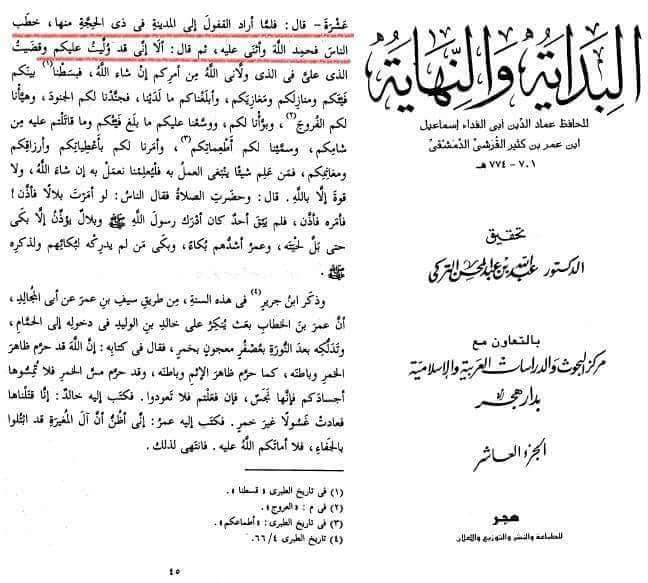 البداية والنهاية
للحافظ عماد الدين أبى الفداء إسماعيل
ابن عمر بن كثير القرشىّ الدمشقىّ
٧٠١ - ٧٧٤ هـ
تحقيق
الدكتور عبد الله بن عبد المحسن التركى
بالتعاون مع
مركز البحوث والدراسات العربية والإسلامية
بدار هجر
الجزء العاشر
هجر
للطباعة والنشر والتوزيع والإعلان
عَشْرَةَ - قال : فلمَّا أراد القُفولَ إلى المدينةِ فى ذى الحِجَّةِ منها، خطَب
الناسَ فحمِد اللَّهَ وأثنَى عليه، ثم قال: ألا إنِّى قد وُلِّيتُ عليكم وقضَيتُ
الذى علىَّ فى الذى ولَّانى اللَّهُ مِن أمرِكم إن شاء اللَّهُ، فبسَطْنا(١) بينَكم
فَيْئَكم ومنازِلَكم ومَغازِيَكم، وأبلَغْناكم ما لَدَيْنا، فجنَّدْنا لكم الجنودَ، وهيَّأْنا
لكم الفُروجَ(٢)، وبوَّأْنا لكم، ووسَّعْنا عليكم ما بلَغ فَيْئُكم وما قاتَلْتم عليه مِن
شامِكم، وسمَّيْنا لكم أَطْعِماتِكم(٣)، وأمَرنا لكم بأَعْطِياتِكم وأرزاقِكم
ومغانِمِكم، فمَن عَلِم شيئًا يَنْبَغى العملُ به فلْيُعلِمْنا نعمَلْ به إن شاءَ اللَّهُ، ولا
قوةَ إلَّا باللَّهِ. قال: وحضَرتِ الصلاةُ فقال الناسُ: لو أمَرْتَ بلالًا فأذَّن!
فأمَره فأذَّن، فلم يَبْقَ أحدٌ كان أدْرَك رسولَ اللَّهِ ﷺ وبلالٌ يؤذِّنُ إلَّا بكَى
حتى بَلَّ لِحْيَتَه، وعمرُ أشدُّهم بُكاءً، وبكَى مَن لم يدرِكْه لِبُكائِهم ولذِكرِه
ﷺ .
وذكَر ابنُ جريرٍ(٤) فى هذه السنةِ، مِن طريقِ سيفِ بنِ عمرَ عن أبى المُجالِدِ،
أنَّ عمرَ بنَ الخطابِ بعَث يُنكِرُ على خالدِ بنِ الوليدِ فى دخولِه إلى الحمَّامِ،
وتَدَلُّكِه بعدَ النُّورَةِ بعُصْفُرٍ معجونٍ بخمرٍ، فقال فى كتابِه: إنَّ اللَّهَ قد حرَّم ظاهرَ
الخمرِ وباطنَه، كما حرَّم ظاهرَ الإثمِ وباطنَه، وقد حرَّم مسَّ الخمرِ فلا تُمِسُّوها
أجسادَكم فإنَّها نَجَسٌ، فإن فعَلْتم فلا تعودوا. فكتَب إليه خالدٌ: إنَّا قتَلْناها
فعادتْ غَسُولًا غيرَ خمرٍ. فكتَب إليه عمرُ: إنِّى أظُنُّ أنَّ آلَ المُغيرَةِ قد ابْتُلوا
بالجَفاءِ، فلا أماتَكم اللَّهُ عليه. فانتهى لذلك.
(١) فى تاريخ الطبرى « قسطنا ».
(٢) فى م : « العروج ».
(٣) فى تاريخ الطبرى : « أطماعكم ».
(٤) تاريخ الطبرى ٦٦/٤.
٤٥